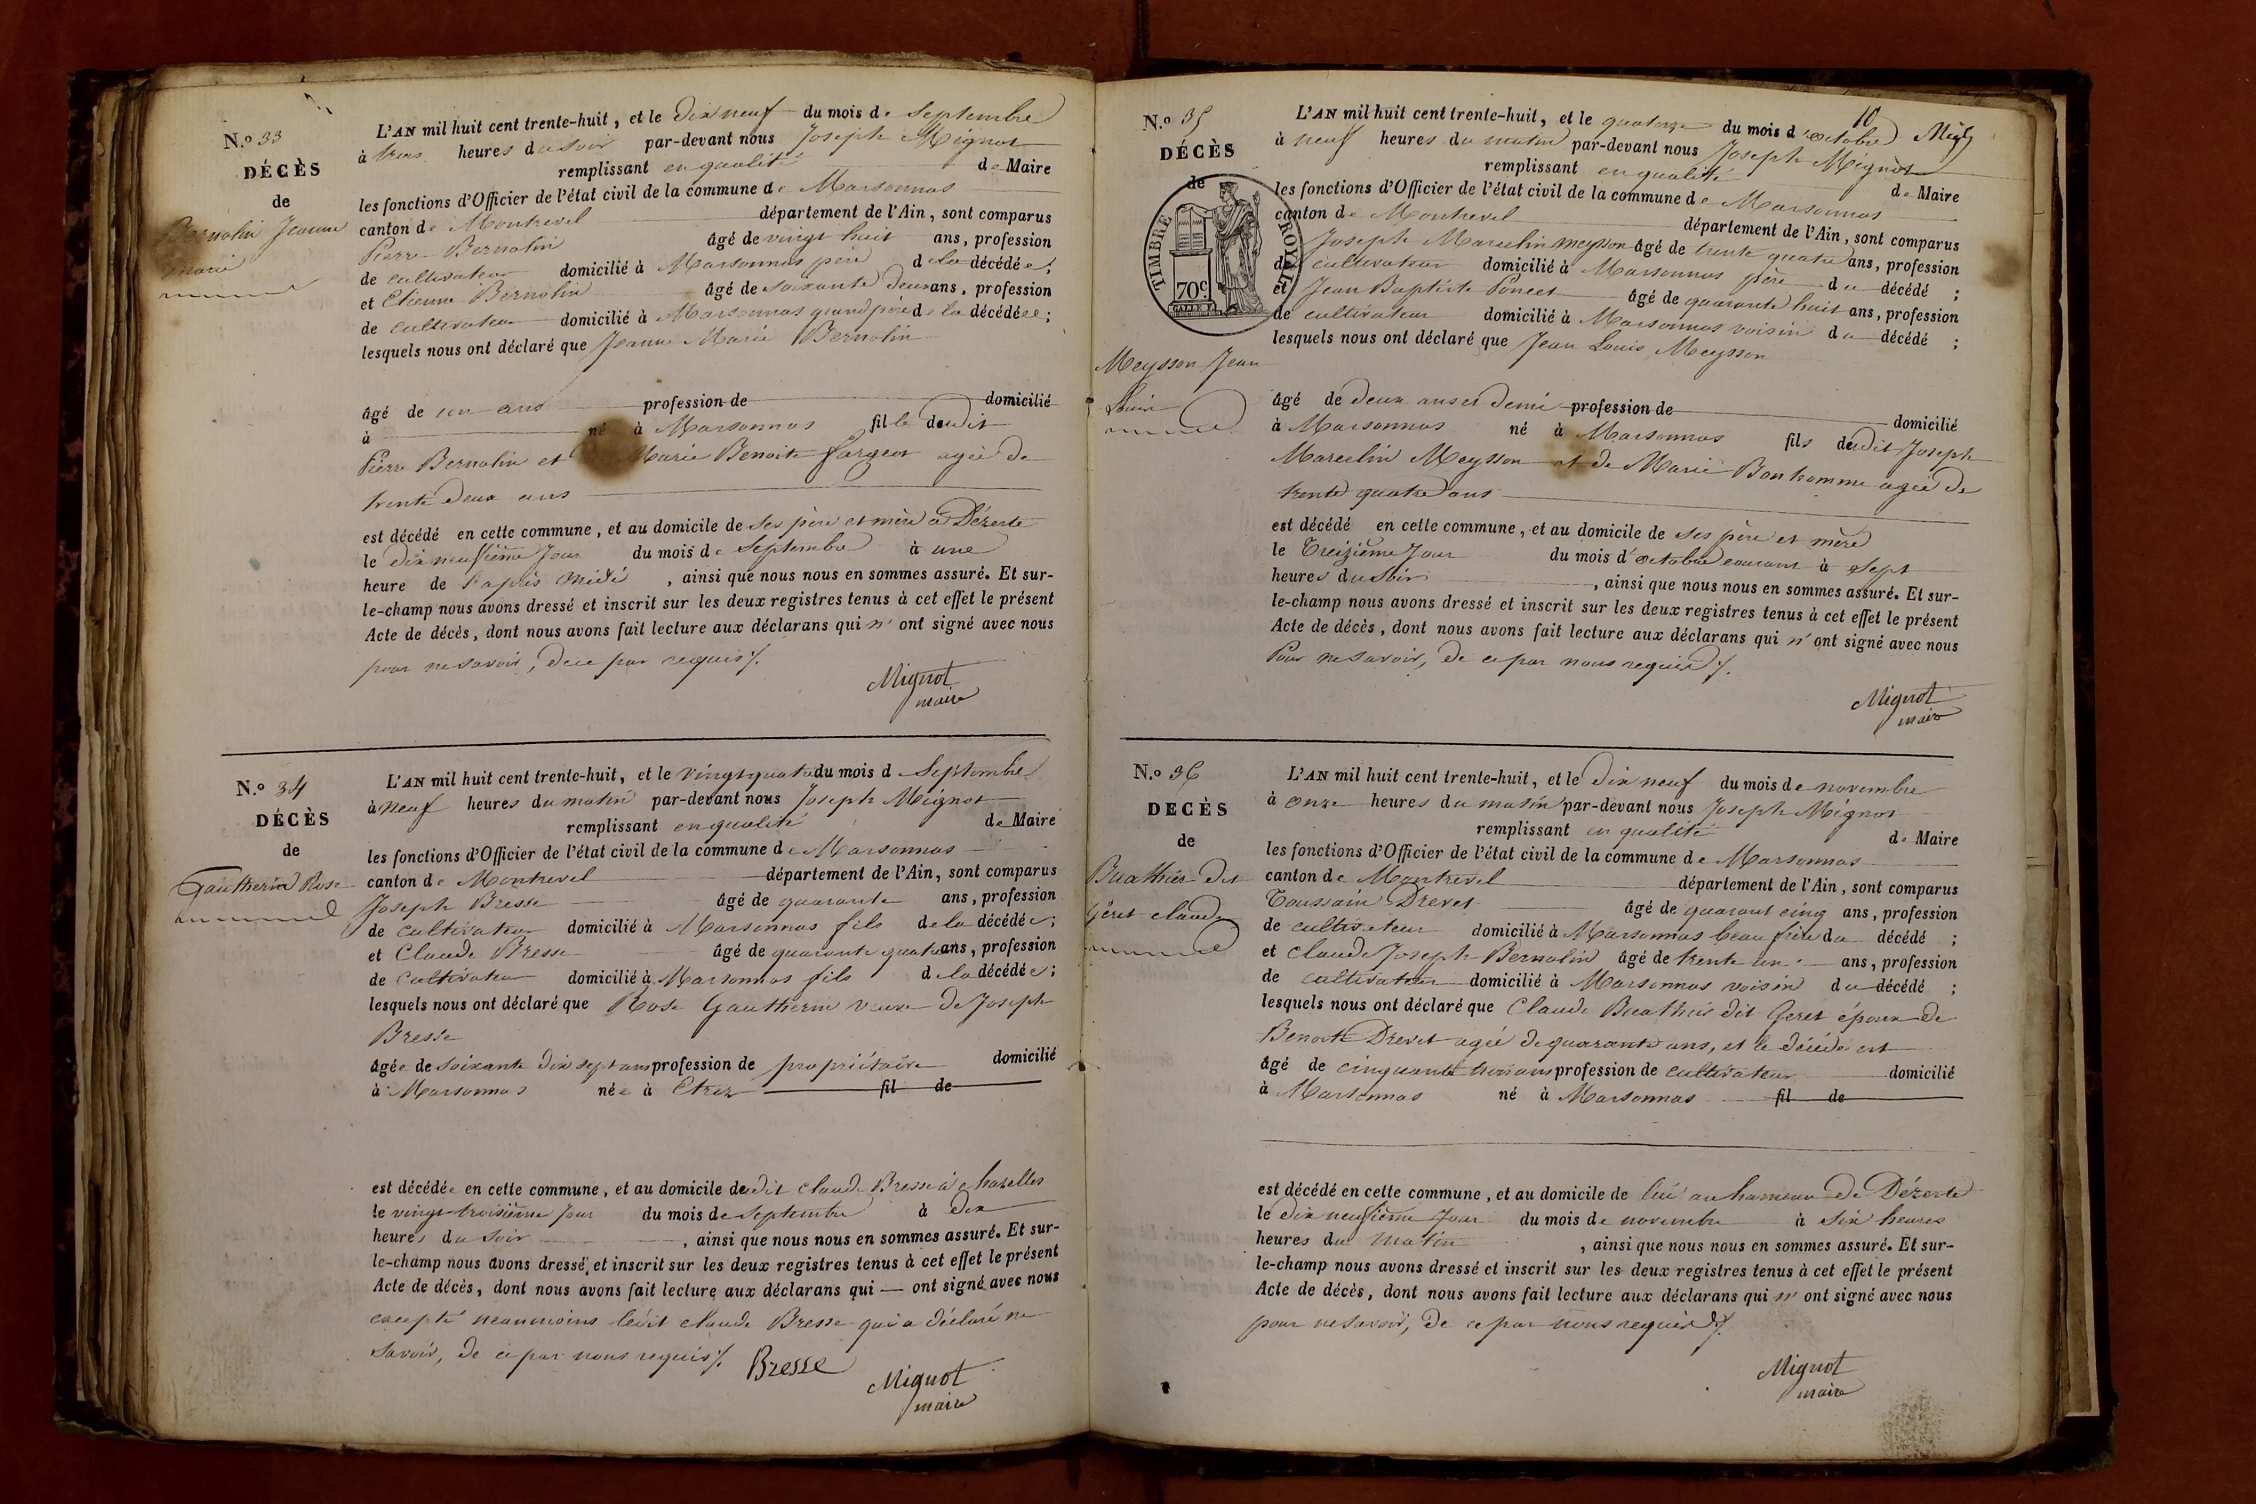 N.o 33
DÉCÈS
de
Bernolin Jeanne
Marie
L'AN mil huit cent trente-huit, et le dix neuf du mois de Septembre
à trois heures du soir par-devant nous Joseph Mignot
remplissant en qualité de Maire
les fonctions d'Officier de l'état civil de la commune de Marsonnas
canton de Montrevel département de l'Ain, sont comparus
Pierre Bernolin âgé de vingt huit ans, profession
de cultivateur domicilié à Marsonnas père de la décédée;
et Etienne Bernolin âgé de soixante deux ans, profession
de cultivateur domicilié à Marsonnas grand père de la décédée;
lesquels nous ont déclaré que Jeanne Marie Bernolin
âgé de un ans profession de domicilié
à né à Marsonnas fille dudit
Pierre Bernolin et Marie Benoite Fargeot agée de
trente deux ans
est décédé en cette commune, et au domicile de ses père et mère à Dézerte
le dix neuvième jour du mois de Septembre à une
heure de l'après midi, ainsi que nous nous en sommes assuré. Et sur-
le-champ nous avons dressé et inscrit sur les deux registres tenus à cet effet le présent
Acte de décès, dont nous avons fait lecture aux déclarans qui n'ont signé avec nous
pour ne savoir, de ce par requis /.
Mignot
maire
N.o 34
DÉCÈS
de
Gautherin Rose
L'AN mil huit cent trente-huit, et le vingt quatre du mois d Septembre
à neuf heures du matin par-devant nous Joseph Mignot
remplissant en qualité de Maire
les fonctions d'Officier de l'état civil de la commune de Marsonnas
canton de Montrevel département de l'Ain, sont comparus
Joseph Bresse âgé de quarante ans, profession
de cultivateur domicilié à Marsonnas fils de la décédée;
et Claude Bresse âgé de quarante quatre ans, profession
de cultivateur domicilié à Marsonnas fils de la décédée;
lesquels nous ont déclaré que Rose Gautherin veuve de Joseph
Bresse
âgée de soixante dix sept ans profession de propriétaire domicilié
à Marsonnas née à Etrez fil de
est décédée en cette commune, et au domicile dudit Claude Bresse à chazelles
le vingt troisième jour du mois de septembre à dix
heures du soir, ainsi que nous nous en sommes assuré. Et sur-
le-champ nous avons dressé et inscrit sur les deux registres tenus à cet effet le présent
Acte de décès, dont nous avons fait lecture aux déclarans qui — ont signé avec nous
excepté neanmoins ledit Claude Bresse qui a déclaré ne
savoir, de ce par nous requis /. Bresse
Mignot
maire
10
N.o 35
DÉCÈS
de
TIMBRE ROYAL
70c
Meysson Jean
Louis
L'AN mil huit cent trente-huit, et le quatorze du mois d'octobre
à neuf heures du matin par-devant nous Joseph Mignot
remplissant en qualité de Maire
les fonctions d'Officier de l'état civil de la commune de Marsonnas
canton de Montrevel département de l'Ain, sont comparus
Joseph Marcelin Meysson âgé de trente quatre ans, profession
de cultivateur domicilié à Marsonnas père du décédé;
et Jean Baptiste Poncet âgé de quarante huit ans, profession
de cultivateur domicilié à Marsonnas voisin du décédé;
lesquels nous ont déclaré que Jean Louis Meysson
âgé de deux ans et demi profession de domicilié
à Marsonnas né à Marsonnas fils dudit Joseph
Marcelin Meysson et de Marie Bonhomme agée de
trente quatre ans
est décédé en cette commune, et au domicile de ses père et mère
le Treizième Jour du mois d'octobre courant à sept
heures du soir, ainsi que nous nous en sommes assuré. Et sur-
le-champ nous avons dressé et inscrit sur les deux registres tenus à cet effet le présent
Acte de décès, dont nous avons fait lecture aux déclarans qui n'ont signé avec nous
Pour ne savoir, de ce par nous requis /.
Mignot
maire
N.o 36
DÉCÈS
de
Buathier dit
Géret claude
L'AN mil huit cent trente-huit, et le dix neuf du mois de novembre
à onze heures du matin par-devant nous Joseph Mignot
remplissant en qualité de Maire
les fonctions d'Officier de l'état civil de la commune de Marsonnas
canton de Montrevel département de l'Ain, sont comparus
Toussain Drevet âgé de quarant cinq ans, profession
de cultivateur domicilié à Marsonnas beau frère du décédé;
et Claude Joseph Bernolin âgé de trente un ans, profession
de cultivateur domicilié à Marsonnas voisin du décédé;
lesquels nous ont déclaré que Claude Buathier dit Geret époux de
Benoite Drevet agée de quarante ans, et le décédé est
âgé de cinquante trois ans profession de cultivateur domicilié
à Marsonnas né à Marsonnas fil de
est décédé en cette commune, et au domicile de lui au hameau de Dézerte
le dix neuvième Jour du mois de novembre à six heures
heures du matin, ainsi que nous nous en sommes assuré. Et sur-
le-champ nous avons dressé et inscrit sur les deux registres tenus à cet effet le présent
Acte de décès, dont nous avons fait lecture aux déclarans qui n'ont signé avec nous
pour ne savoir, de ce par nous requis /.
Mignot
maire